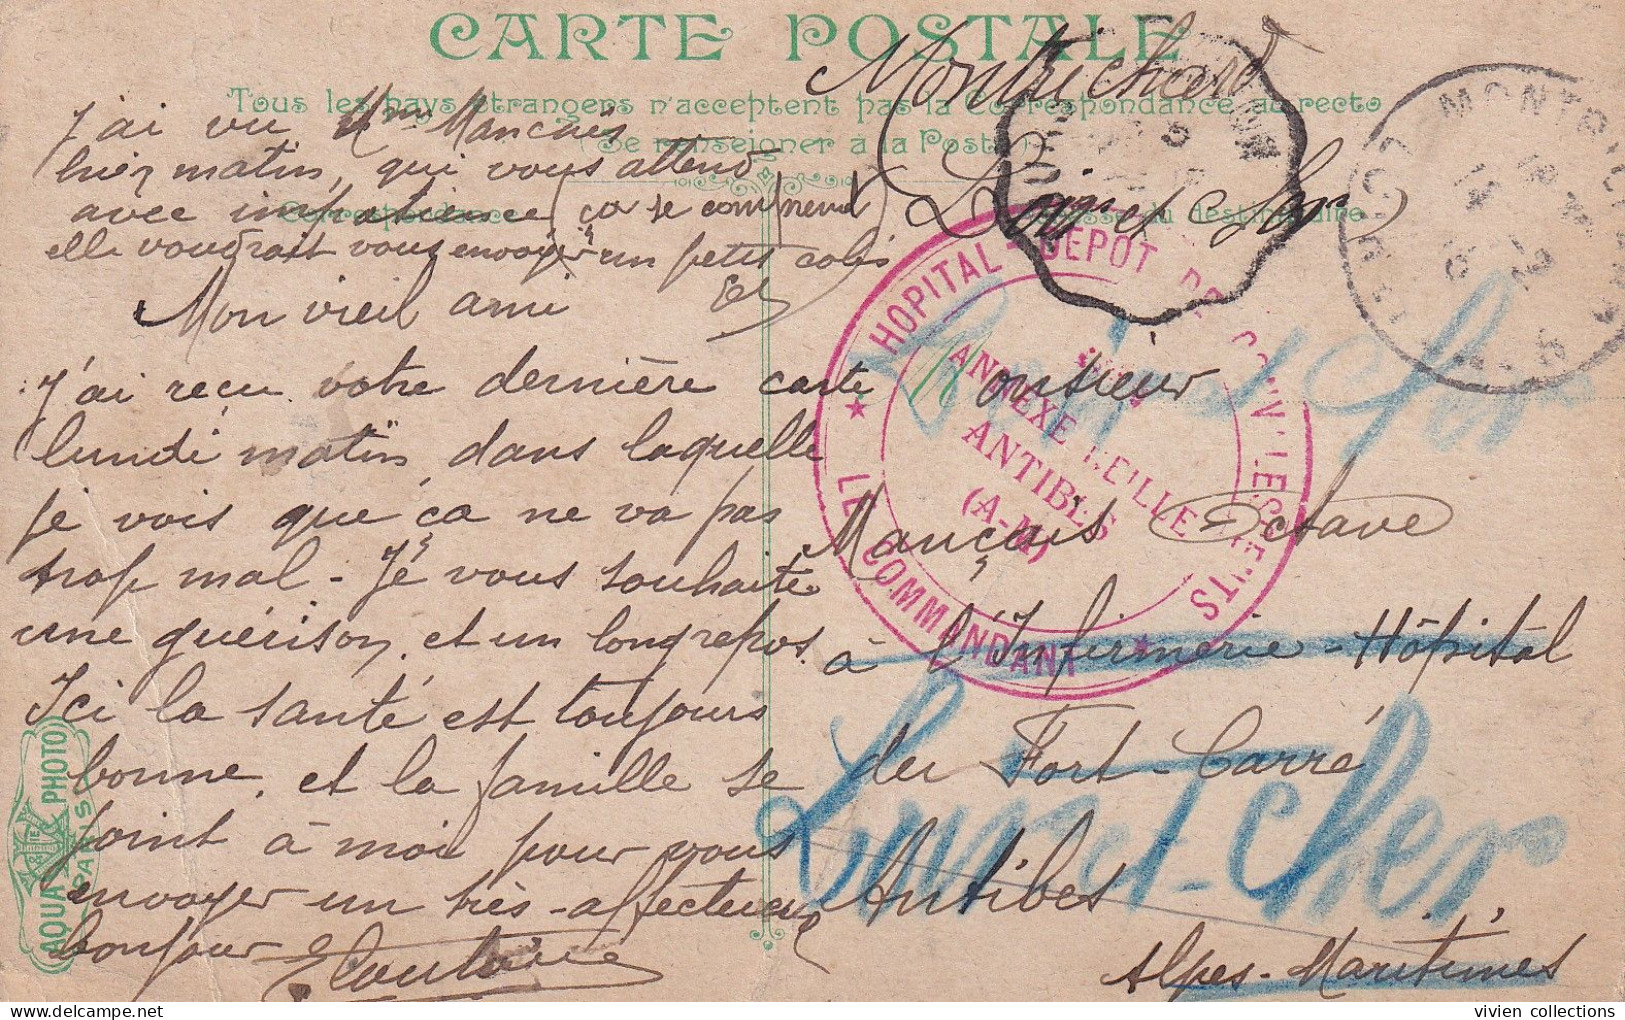 CARTE POSTALE
Tous les pays étrangers n'acceptent pas la Correspondance au recto
(Se renseigner à la Poste)
Correspondance
Adresse du destinataire
J'ai vu Mme Mançais
hier matin, qui vous attend
avec impatience (ça se comprend)
elle voudrait vous envoyer un petit colis
Mon vieil ami
J'ai reçu votre dernière carte
lundi matin dans laquelle
je vois que ça ne va pas
trop mal - Je vous souhaite
une guérison, et un long repos.
Ici la santé est toujours
bonne, et la famille se
joint à moi pour vous
envoyer un très-affectueux
bonjour
Montrichard
Loir et Cher
Monsieur
Mançais Octave
à l'Infirmerie-Hôpital
du Fort-Carré
Antibes
Alpes-Maritimes
Loir et Cher
HOPITAL - DEPOT DE CONVALESCENTS
ANNEXE REILLE
ANTIBES
(A-M)
★ LE COMMANDANT ★
MONTRICHARD
LOIR-ET-CHER
AQUA PHOTO
PARIS